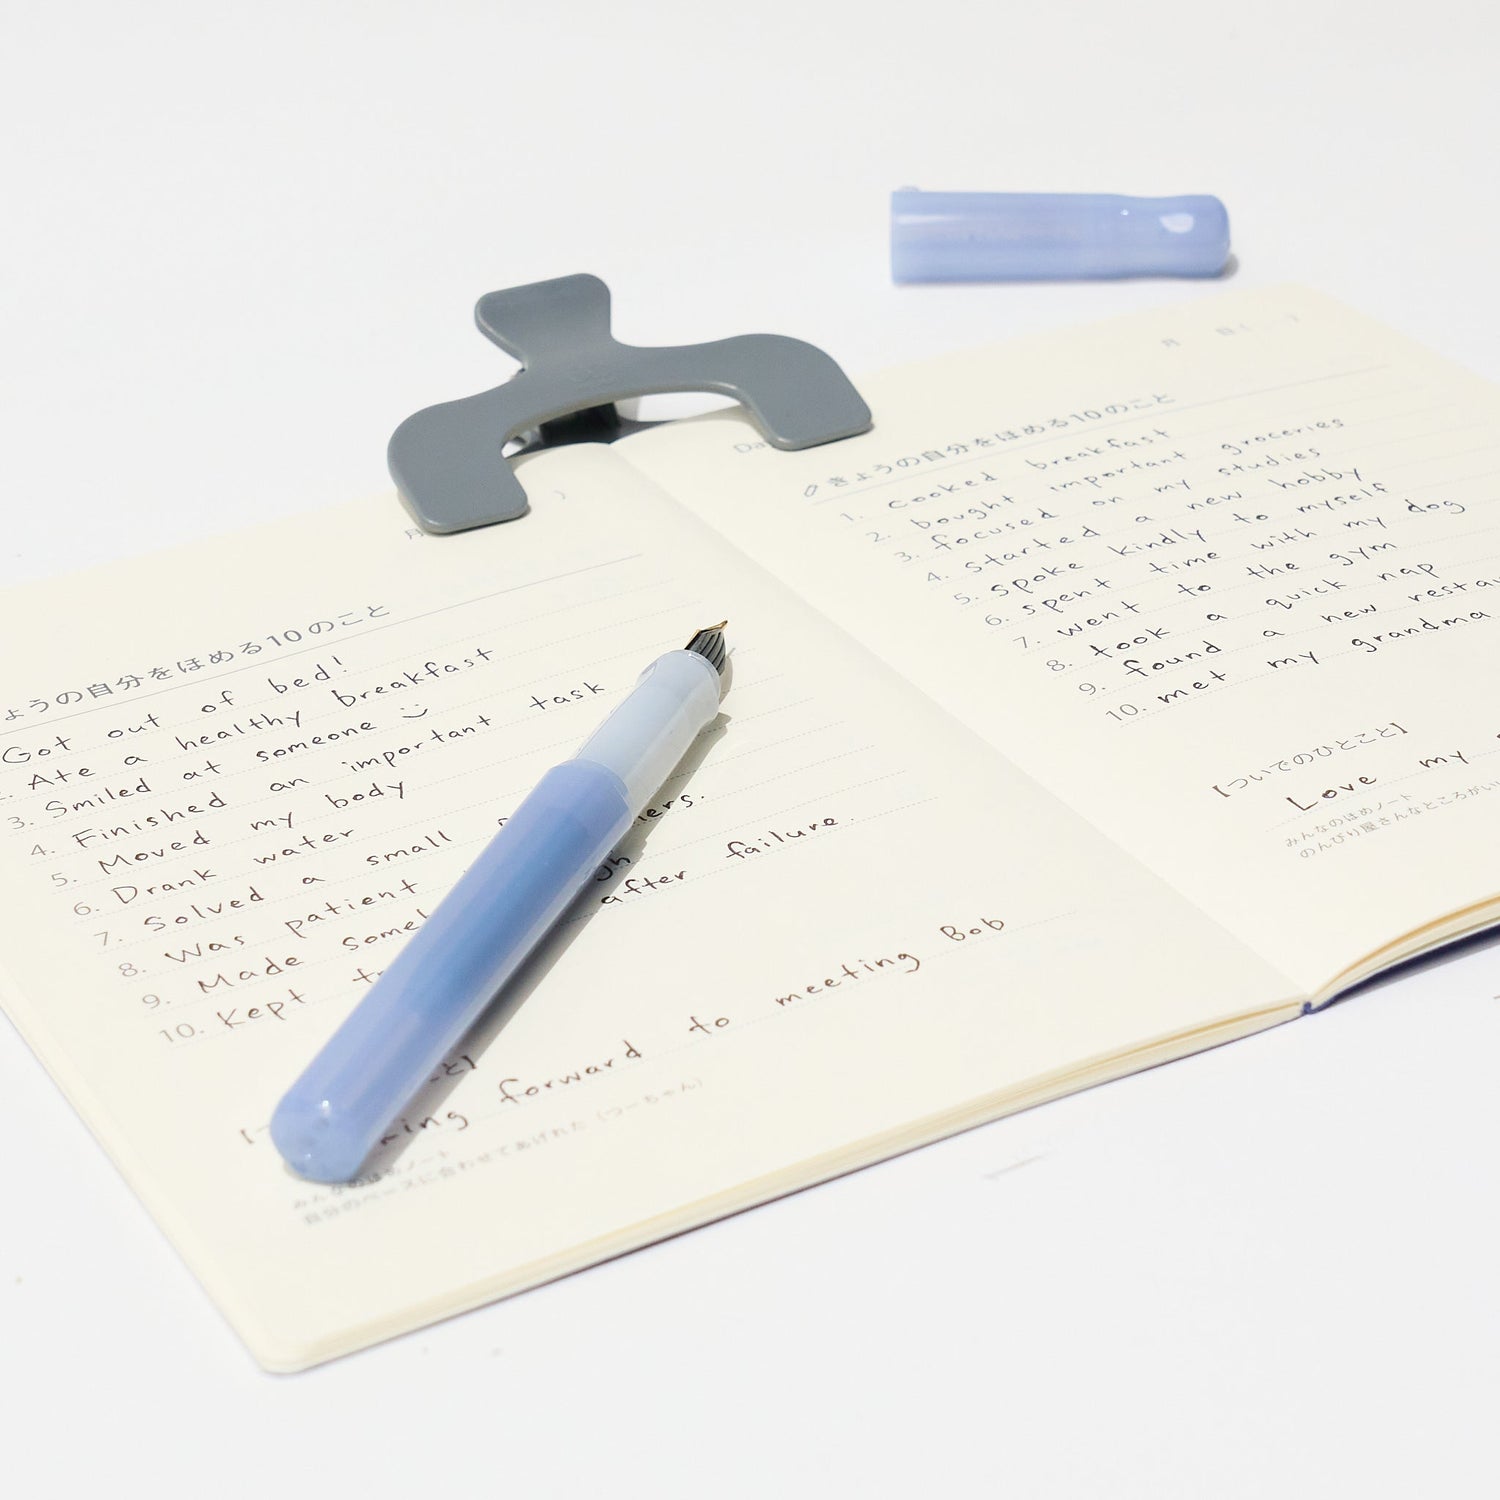 月
ょうの自分をほめる10のこと
Got out of bed!
Ate a healthy breakfast
3. Smiled at someone
4. Finished an important task
5. Moved my body
6. Drank water
7. Solved a small
8. Was patient
9. Made
10. Kept after failure.
forward to meeting Bob
みんなのほめノート
自分のペースに合わせてあげれた (つーちゃん)
月 日( )
きょうの自分をほめる10のこと
1. cooked breakfast
2. bought important groceries
3. focused on my studies
4. started a new hobby
5. spoke kindly to myself
6. spent time with my dog
7. went to the gym
8. took a quick nap
9. found a new
10. met my grandma
【ついでのひとこと】
Love my
みんなのほめノート
のんびり屋さんなところがい